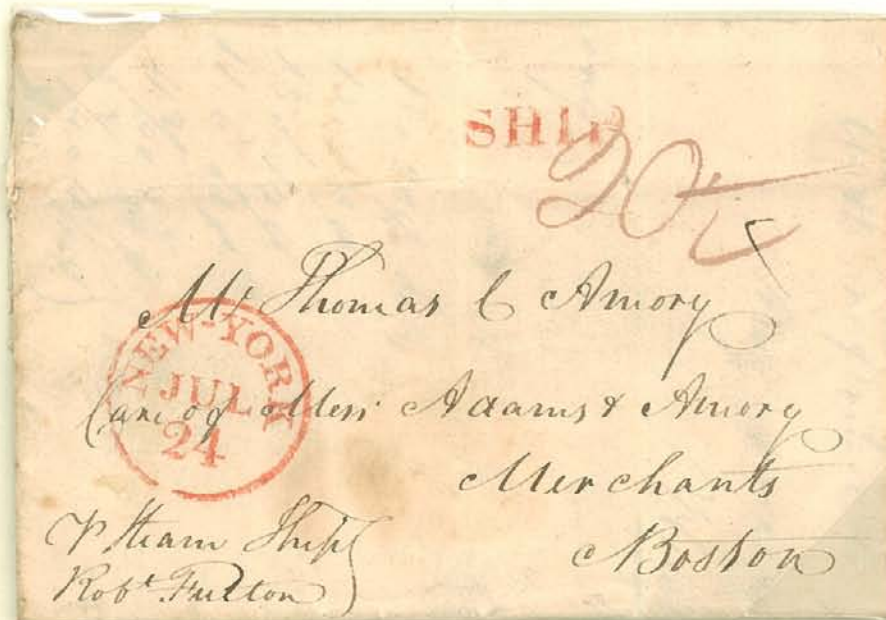 SHIP
20½
Mr Thomas C Amory
NEW-YORK
JUL
24
Care of Messrs Adams & Amory
Merchants
Boston
Steam Ship
Robt. Fulton